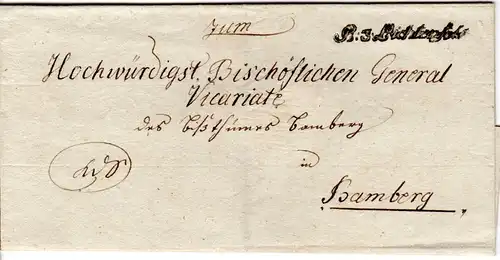 Zum
R. 3. Lichtenfels
Hochwürdigst. Bischöflichen General
Vicariate
des Bißthumes Bamberg
in
Bamberg